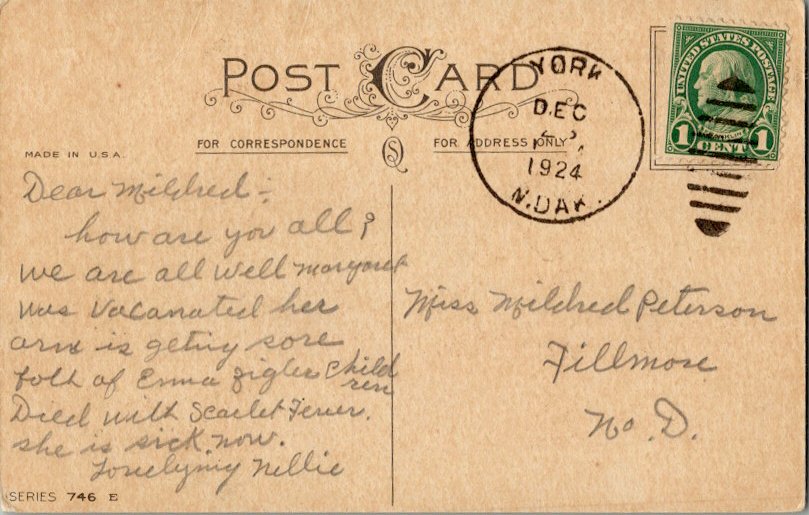 POST CARD
FOR CORRESPONDENCE
FOR ADDRESS ONLY
MADE IN U.S.A.
YORK
DEC
1924
N.DAK.
UNITED STATES POSTAGE
FRANKLIN
1 CENT 1
Dear Mildred:
how are you all?
we are all well Margaret
was Vacanated her
arm is geting sore
both of Emma Zigler Child
ren
Died with Scarlet Fever.
she is sick now.
Nellie
Miss Mildred Peterson
Fillmore
No. D.
SERIES 746 E